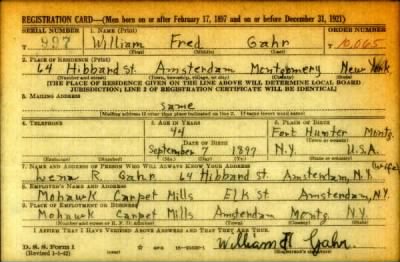 REGISTRATION CARD—(Men born on or after February 17, 1897 and on or before December 31, 1921)
SERIAL NUMBER 1. NAME (Print) ORDER NUMBER
T 927 William Fred Gahr T 10,065
(First) (Middle) (Last)
2. PLACE OF RESIDENCE (Print)
64 Hibbard St. Amsterdam Montgomery New York
(Number and street) (Town, township, village, or city) (County) (State)
[THE PLACE OF RESIDENCE GIVEN ON THE LINE ABOVE WILL DETERMINE LOCAL BOARD
JURISDICTION; LINE 2 OF REGISTRATION CERTIFICATE WILL BE IDENTICAL]
3. MAILING ADDRESS
Same
[Mailing address if other than place indicated on line 2. If same insert word same]
4. TELEPHONE 5. AGE IN YEARS 6. PLACE OF BIRTH
44 Fort Hunter Montg.
DATE OF BIRTH (Town or county)
September 7 1897 N.Y. U.S.A.
(Exchange) (Number) (Mo.) (Day) (Yr.) (State or country)
7. NAME AND ADDRESS OF PERSON WHO WILL ALWAYS KNOW YOUR ADDRESS (wife)
Lena R. Gahr 64 Hibbard St. Amsterdam, N.Y.
8. EMPLOYER'S NAME AND ADDRESS
Mohawk Carpet Mills Elk St Amsterdam, N.Y.
9. PLACE OF EMPLOYMENT OR BUSINESS
Mohawk Carpet Mills Amsterdam Montg. N.Y.
(Number and street or R. F. D. number) (Town) (County) (State)
I AFFIRM THAT I HAVE VERIFIED ABOVE ANSWERS AND THAT THEY ARE TRUE.
D. S. S. Form 1
(Revised 1-1-42) GPO William Gahr.
(Registrant's signature)